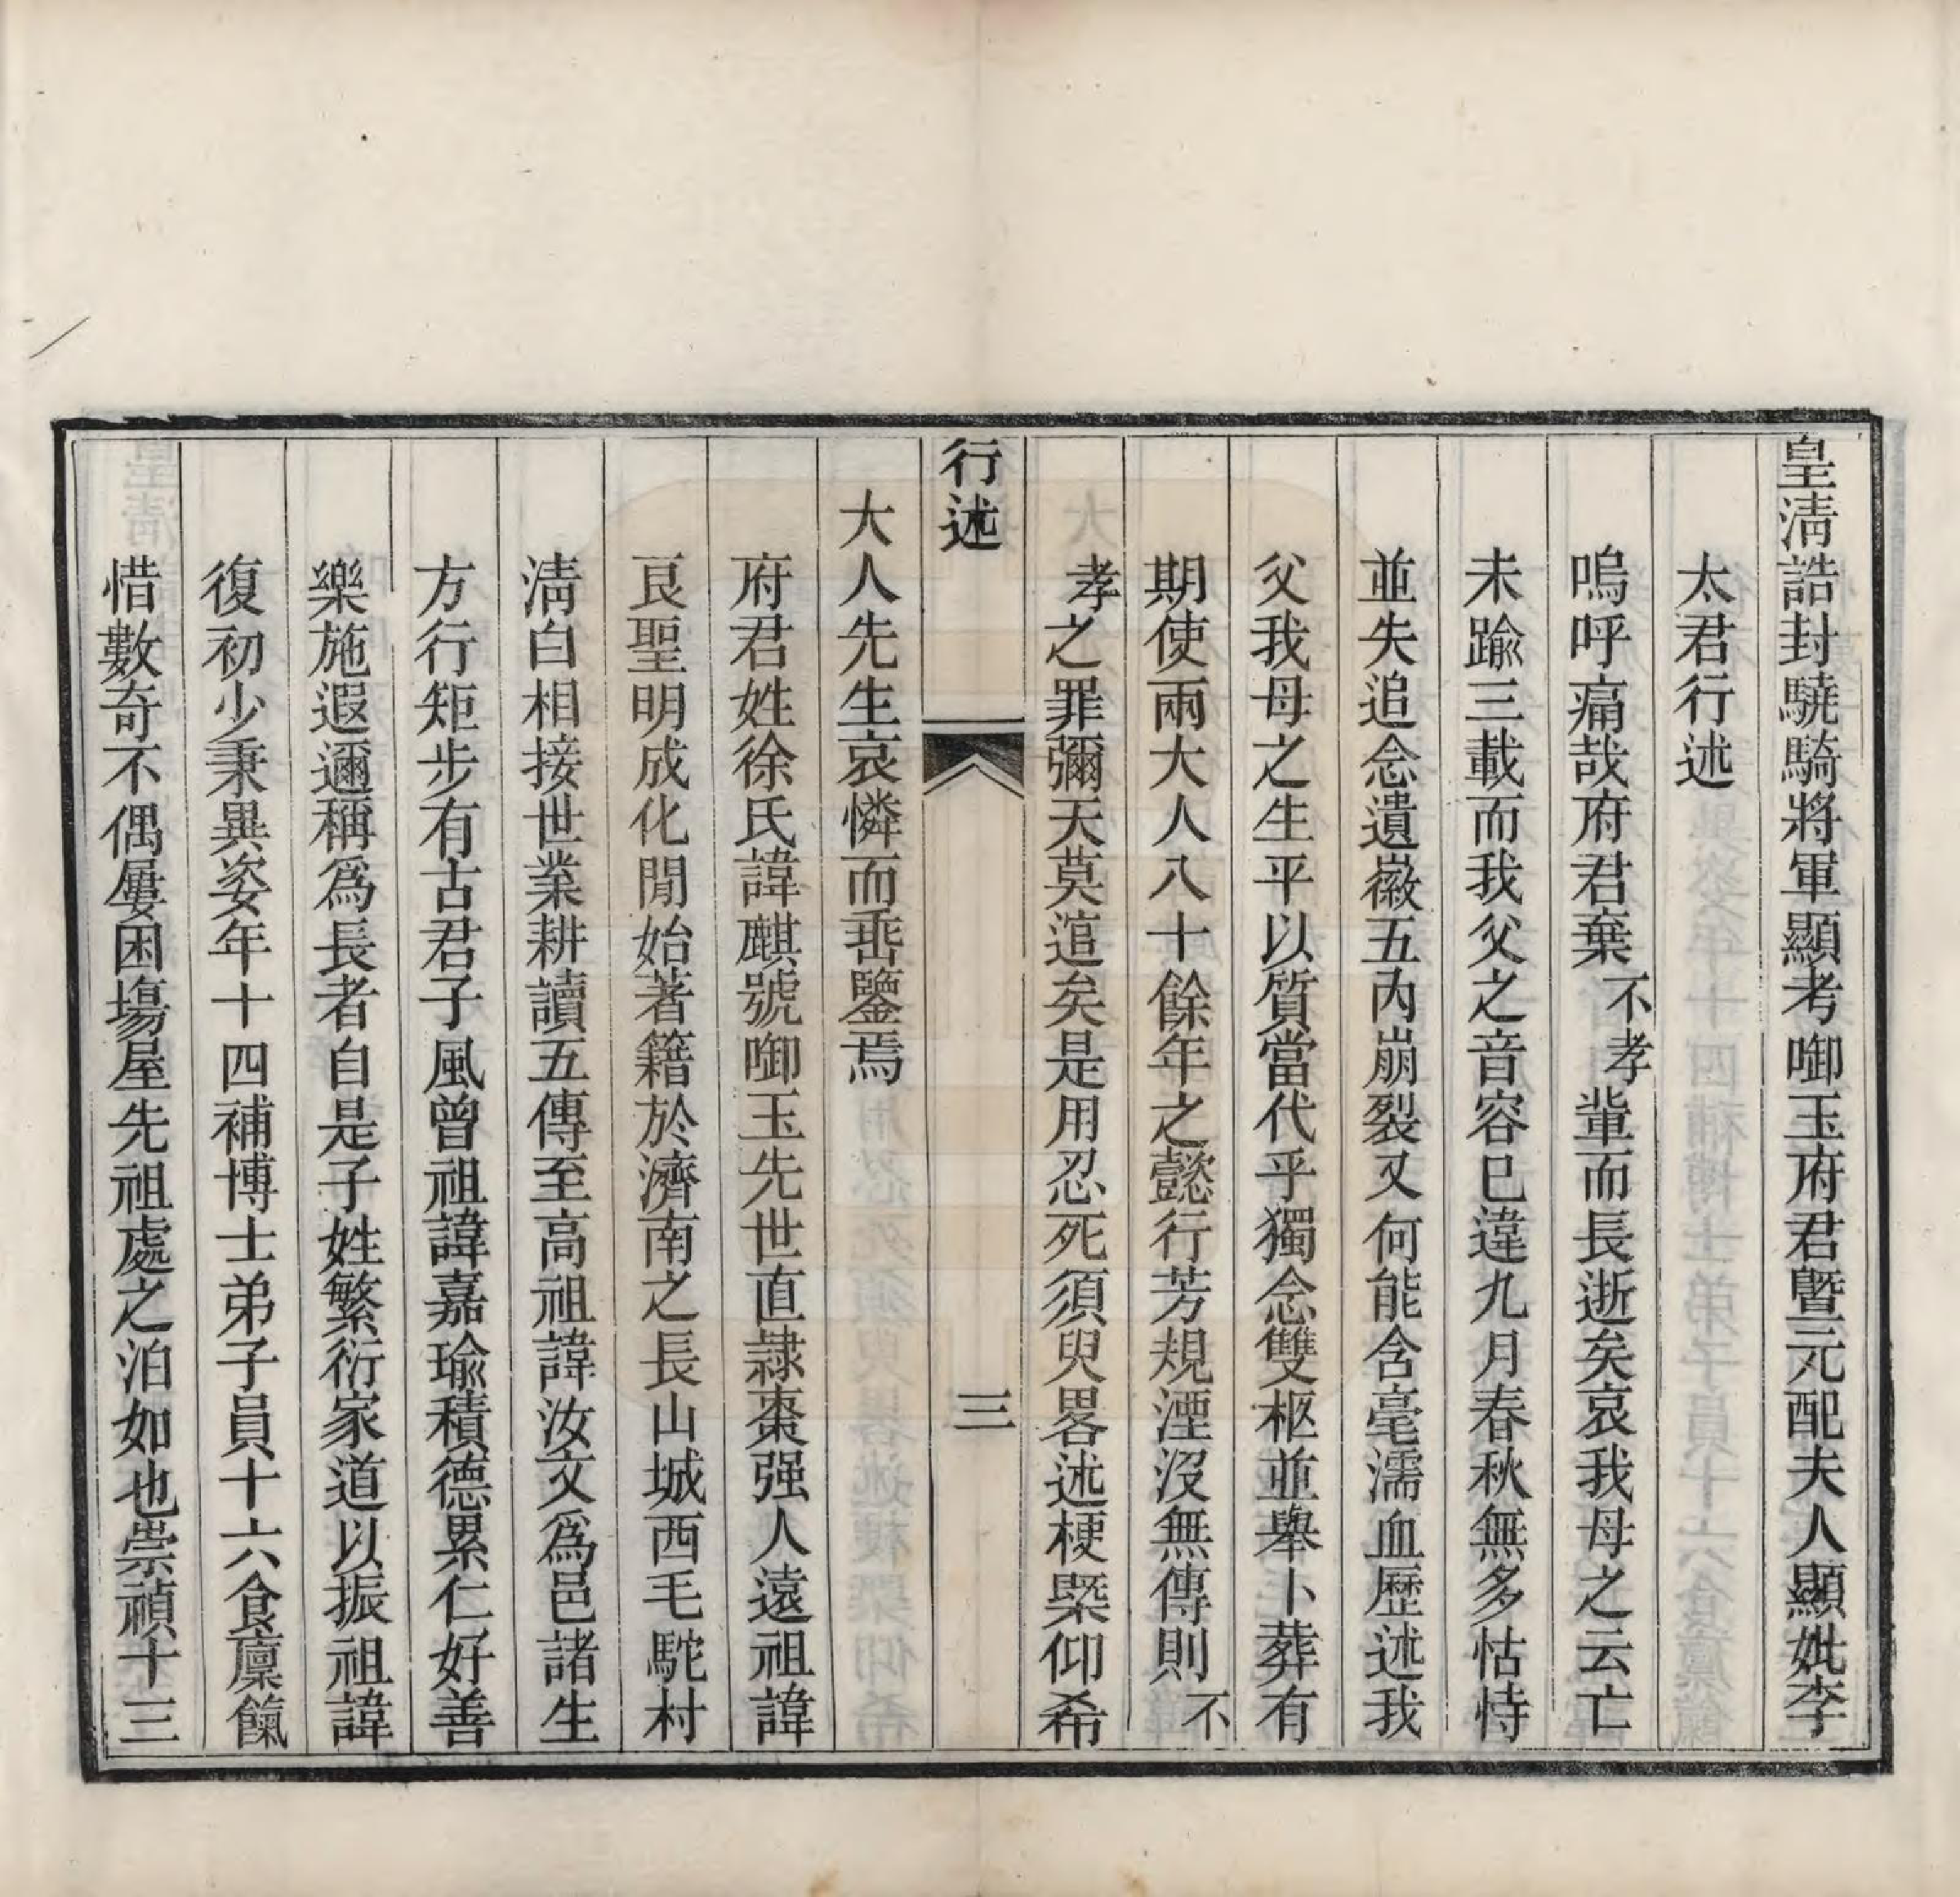 皇淸誥封驍騎將軍顯考啣玉府君暨元配夫人顯妣李
太君行述
嗚呼痛哉府君棄不孝輩而長逝矣哀我母之云亡
未踰三載而我父之音容已違九月春秋無多怙恃
並失追念遺徽五內崩裂又何能含毫濡血歷述我
父我母之生平以質當代乎獨念雙柩並舉卜葬有
期使兩大人八十餘年之懿行芳規湮沒無傳則不
孝之罪彌天莫逭矣是用忍死須臾畧述梗槩仰希
行述
三
大人先生哀憐而垂鑒焉
府君姓徐氏諱麒號啣玉先世直隷棗强人遠祖諱
艮聖明成化閒始著籍於濟南之長山城西毛駝村
淸白相接世業耕讀五傳至高祖諱汝文爲邑諸生
方行矩步有古君子風曾祖諱嘉瑜積德累仁好善
樂施遐邇稱爲長者自是子姓繁衍家道以振祖諱
復初少秉異姿年十四補博士弟子員十六食廩餼
惜數奇不偶屢困塲屋先祖處之泊如也崇禎十三